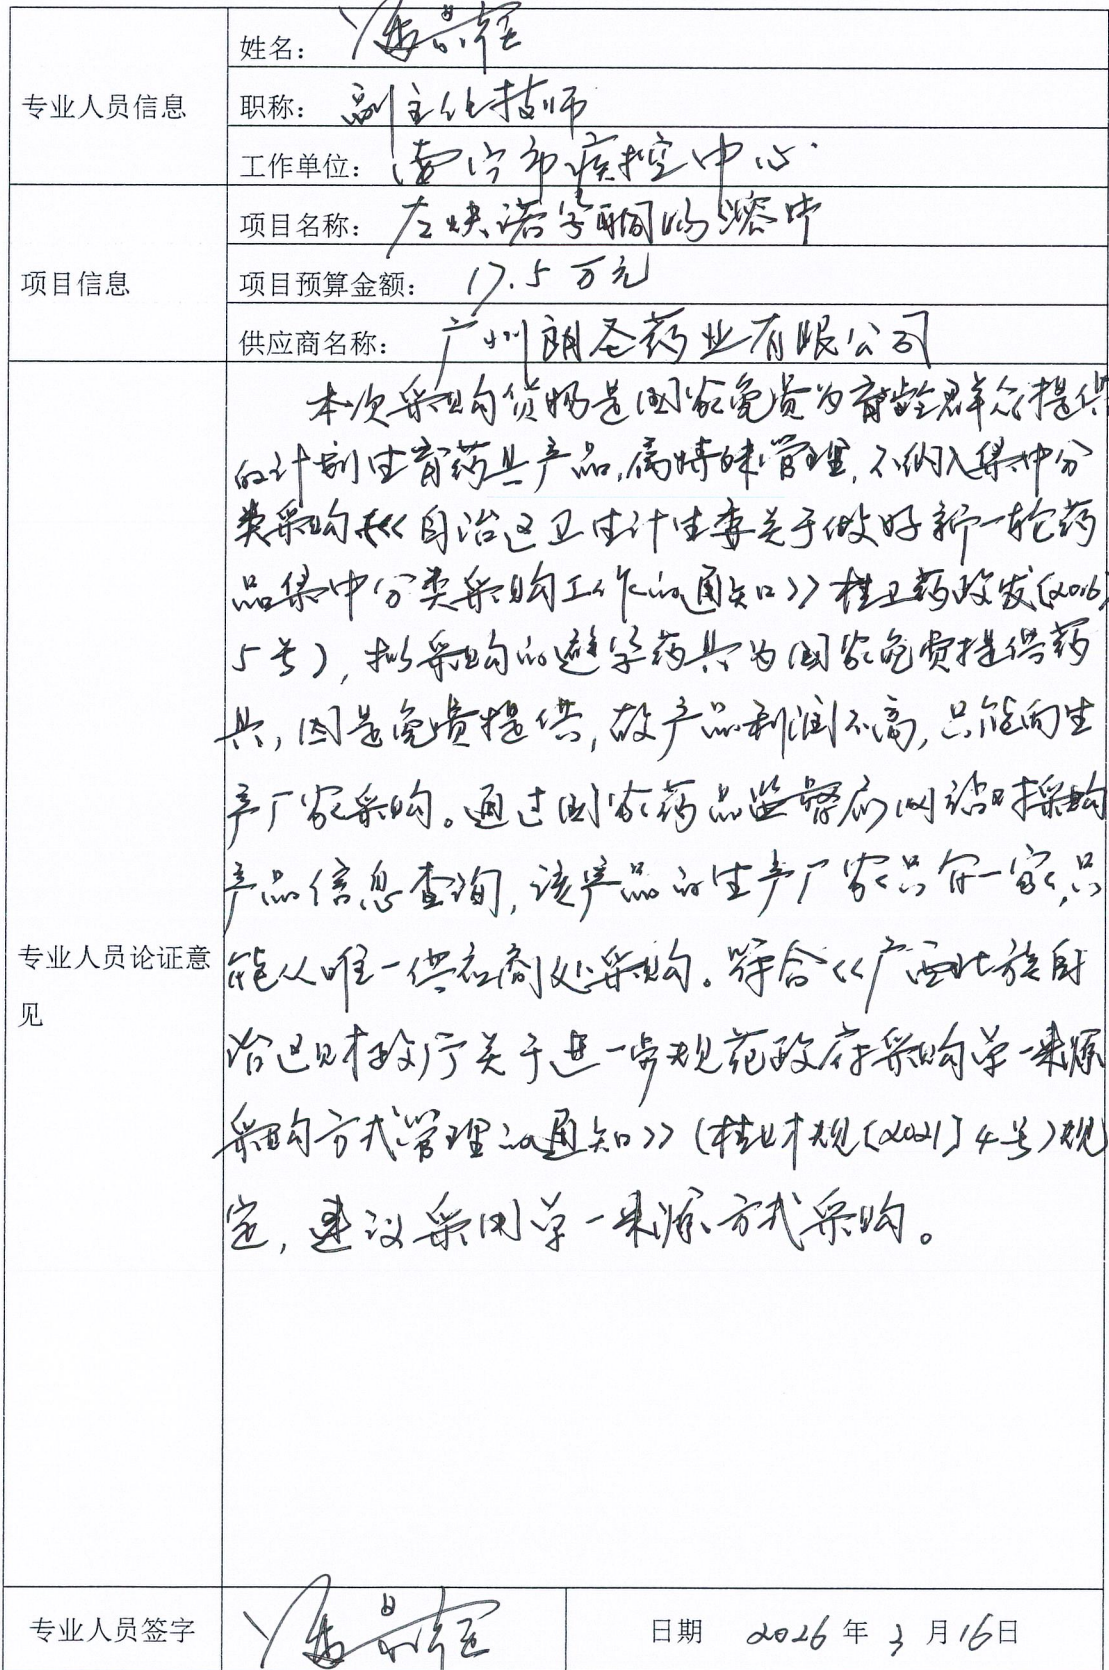 专业人员信息
姓名：潘
职称：副主任技师
工作单位：南宁市疾控中心
项目信息
项目名称：左炔诺孕酮肠溶片
项目预算金额：17.5万元
供应商名称：广州朗圣药业有限公司
专业人员论证意见
本次采购货物是国家免费为育龄群众提供
的计划生育药具产品，属特殊管理，不纳入集中分
类采购《自治区卫生计生委关于做好新一轮药
品集中分类采购工作的通知》桂卫药政发〔2016〕
5号），拟采购的避孕药具为国家免费提供药
具，因是免费提供，故产品利润不高，只能向生
产厂家采购。通过国家药品监督局网站对采购
产品信息查询，该产品的生产厂家只有一家，只
能从唯一供应商处采购。符合《广西壮族自
治区财政厅关于进一步规范政府采购单一来源
采购方式管理的通知》（桂财规〔2021〕4号）规
定，建议采用单一来源方式采购。
专业人员签字 潘
日期 2026年3月16日